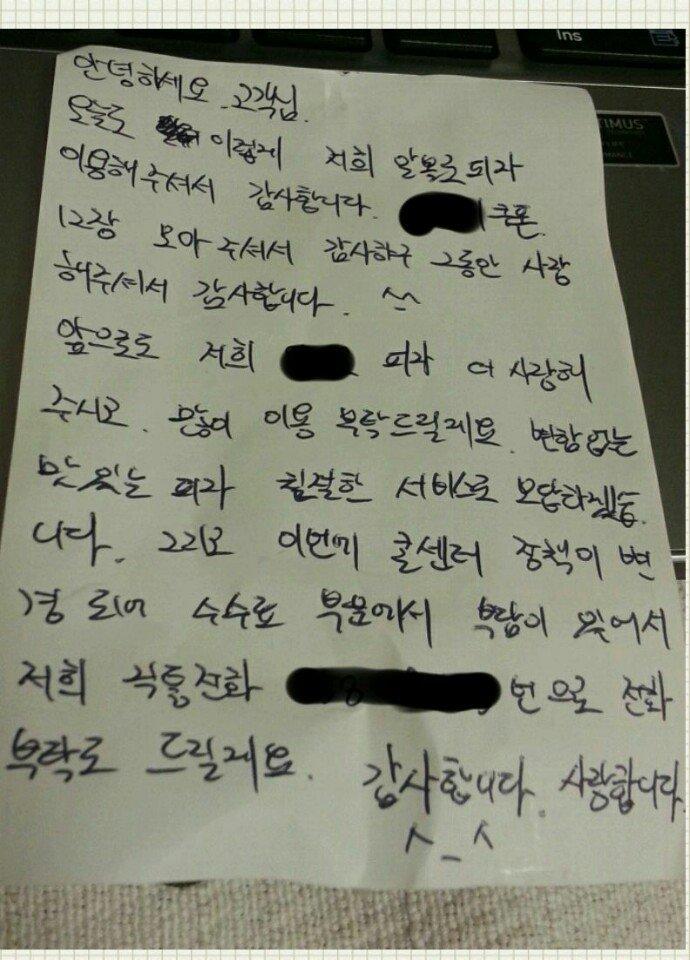 Ins
TIMUS
안녕하세요 고객님.
오늘도 이렇게 저희 알볼로피자
이용해주셔서 감사합니다. 쿠폰
12장 모아 주셔서 감사하구 그동안 사랑
해주셔서 감사합니다. ^^
앞으로도 저희 피자 더 사랑해
주시고. 많이 이용 부탁드릴게요. 변함없는
맛있는 피자 친절한 서비스로 보답하겠습
니다. 그리고 이번에 콜센터 정책이 변
경 되어 수수료 부문에서 부담이 있어서
저희 직통전화 번으로 전화
부탁도 드릴게요. 감사합니다. 사랑합니다.
^_^